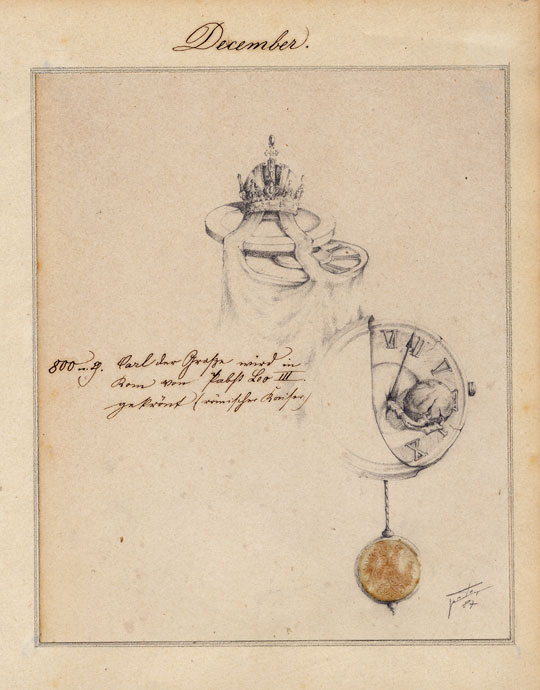 December.
800 n. g. Carl der Große wird in
Rom von Pabst Leo III
gekrönt (römischer Kaiser)
84